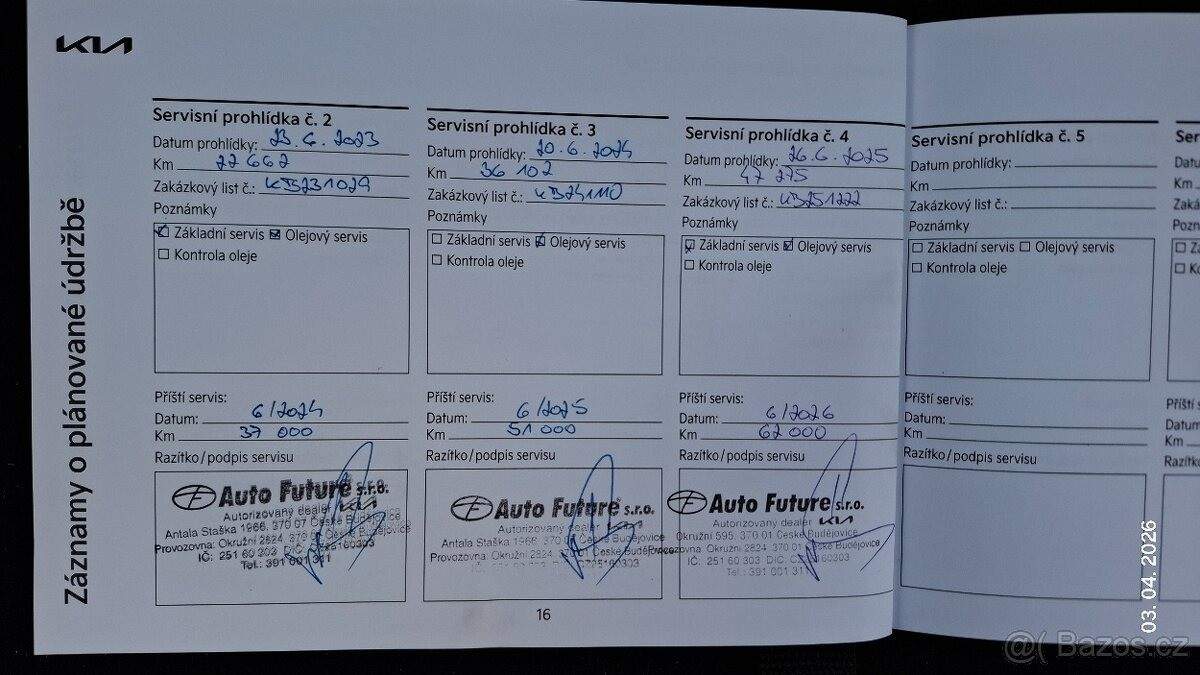 KIA
Záznamy o plánované údržbě
Servisní prohlídka č. 2
Datum prohlídky: 23.6.2023
Km 22 662
Zakázkový list č.: KB231029
Poznámky
Základní servis Olejový servis
Kontrola oleje
Příští servis:
Datum: 6/2024
Km 37 000
Razítko/podpis servisu
Auto Future s.r.o.
Autorizovaný dealer KIA
Antala Staška 1966, 370 07 České Budějovice
Provozovna: Okružní 2824, 370 01 České Budějovice
IČ: 251 60 303 DIČ: CZ25160303
Tel.: 391 001 311
Servisní prohlídka č. 3
Datum prohlídky: 20.6.2024
Km 36 102
Zakázkový list č.: KB241110
Poznámky
Základní servis Olejový servis
Kontrola oleje
Příští servis:
Datum: 6/2025
Km 51 000
Razítko/podpis servisu
Auto Future s.r.o.
Autorizovaný dealer KIA
Antala Staška 1966, 370 07 České Budějovice
Provozovna: Okružní 2824, 370 01 České Budějovice
IČ: 251 60 303 DIČ: CZ25160303
Servisní prohlídka č. 4
Datum prohlídky: 26.6.2025
Km 47 275
Zakázkový list č.: KB251222
Poznámky
Základní servis Olejový servis
Kontrola oleje
Příští servis:
Datum: 6/2026
Km 62 000
Razítko/podpis servisu
Auto Future s.r.o.
Autorizovaný dealer KIA
Okružní 595, 370 01 České Budějovice
Provozovna: Okružní 2824, 370 01 České Budějovice
IČ: 251 60 303 DIČ: CZ25160303
Tel.: 391 001 311
Servisní prohlídka č. 5
Datum prohlídky:
Km
Zakázkový list č.:
Poznámky
Základní servis Olejový servis
Kontrola oleje
Příští servis:
Datum:
Km
Razítko/podpis servisu
Ser
Datu
Km
Zaká
Pozn
Příští
Datum
Km
Razítk
16
03.04.2026
@( Bazos.cz